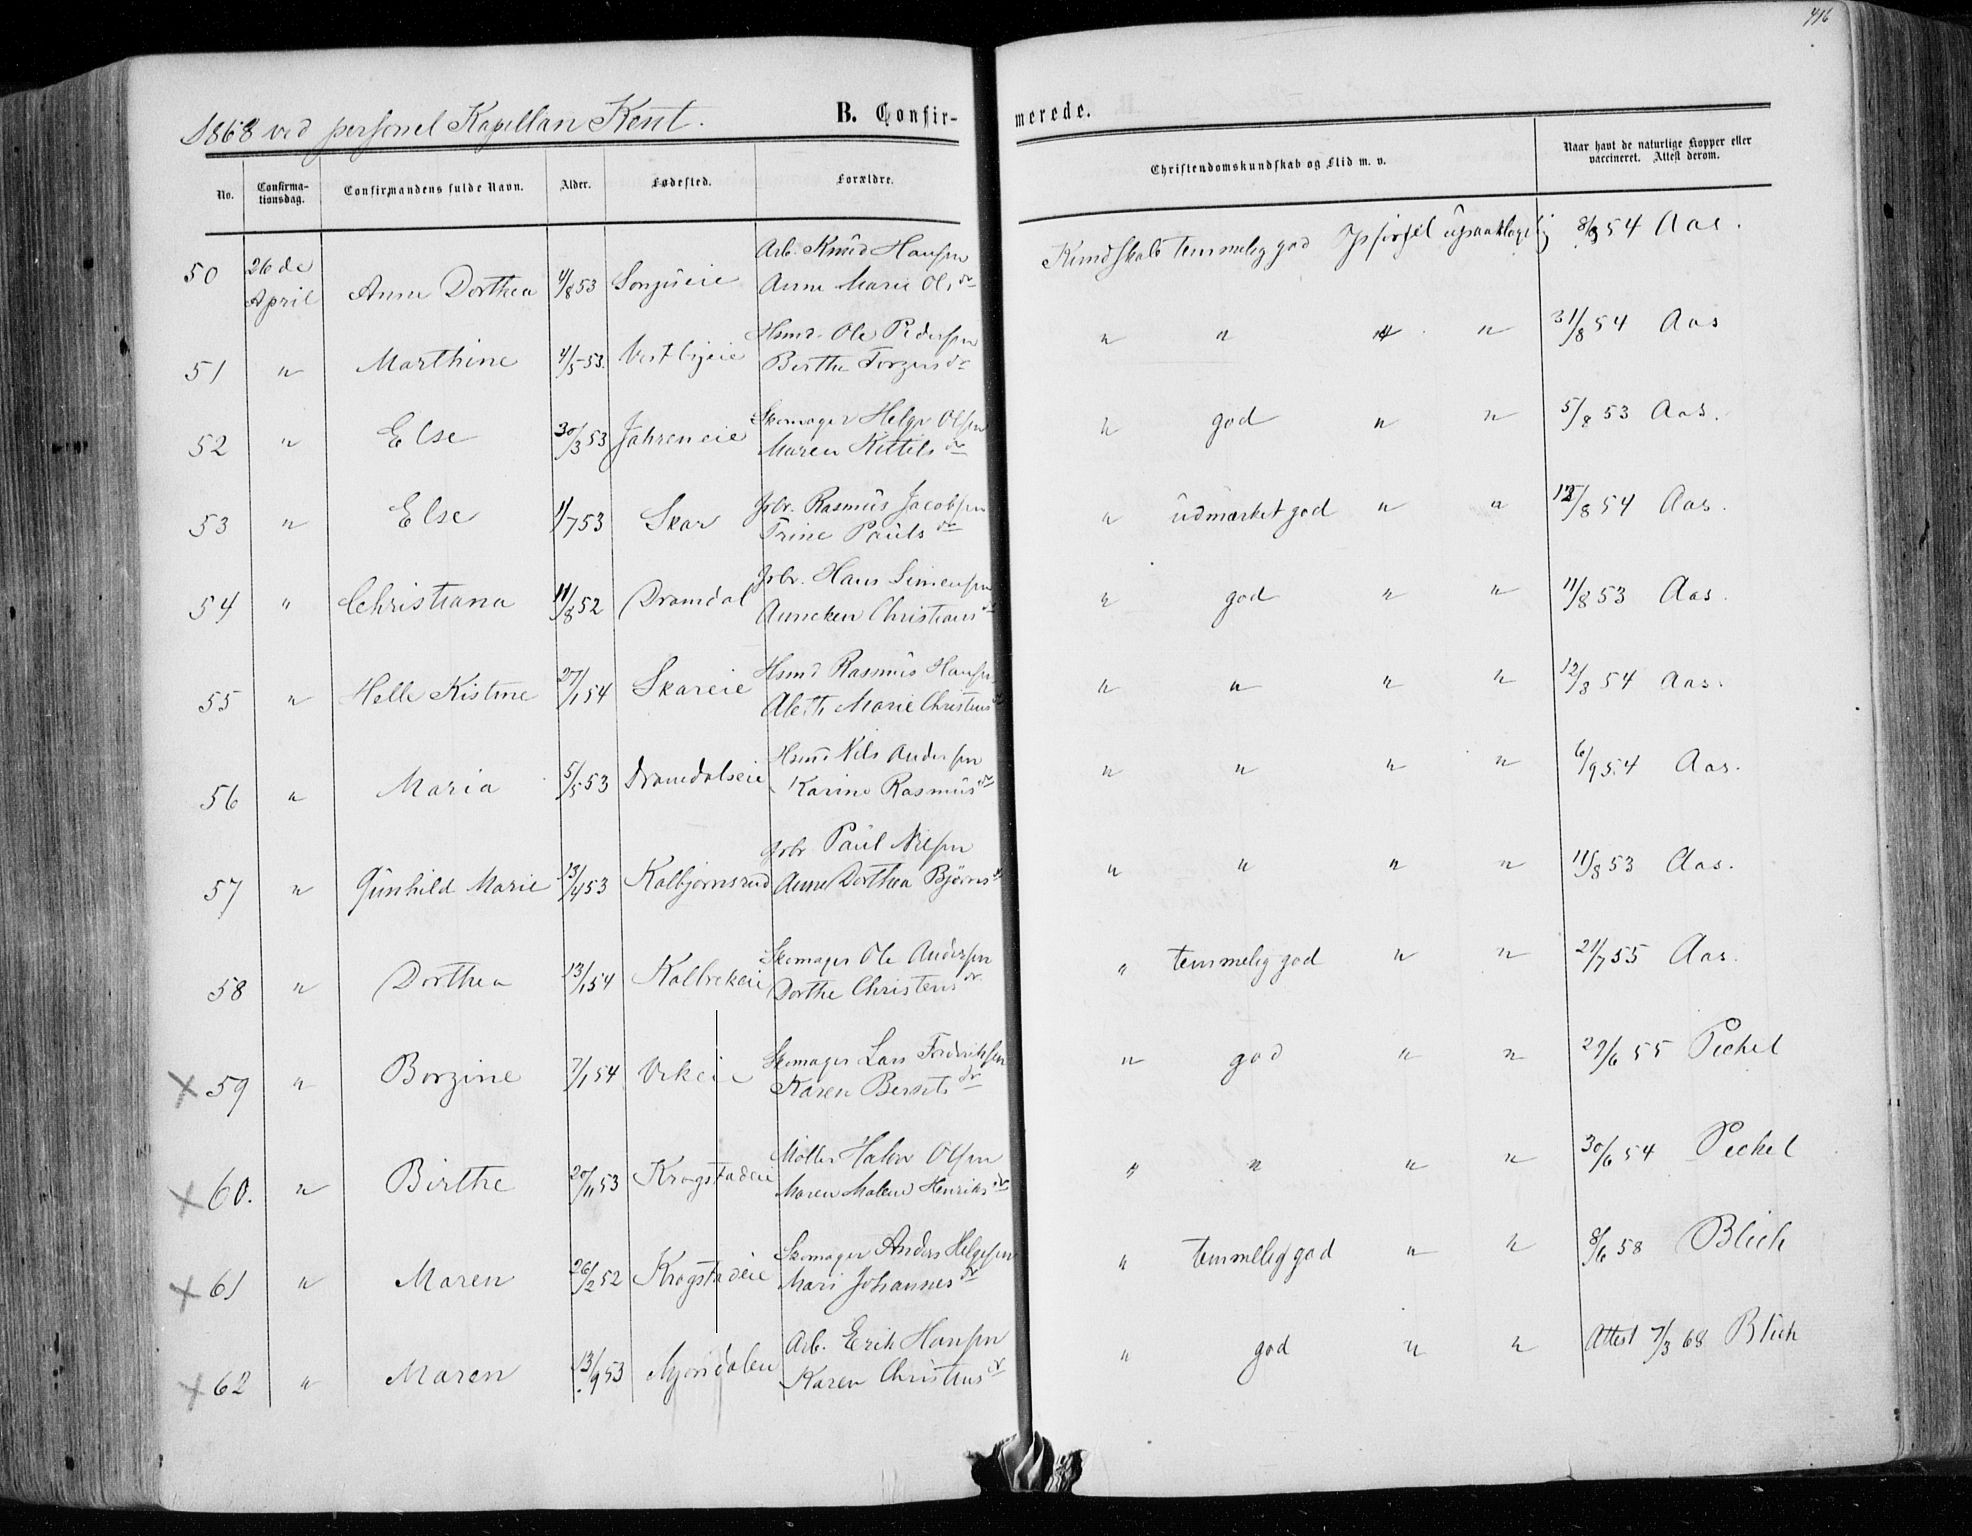 416
1868 ved personel Kapellan Kent.
B. Confir-
merede.
No.
Confirma-
tionsdag.
Confirmandens fulde Navn.
Alder.
Fødested.
Forældre.
Christendomskundskab og Flid m. v.
Naar havt de naturlige Kopper eller
vaccineret. Attest derom.
50 26de April Anne Dorthea 4/8 53
Arb. Knud Hansen
Anne Marie Ols dr
Kundskab temmelig god Opførsel upaaklagelig 8/8 54 Aas.
51 " Marthine 4/5 53. Vestbyeie
Hsmd. Ole Pedersen
Berthe Torgers dr
" " " " 31/8 54 Aas
52 " Else 30/3 53 Jahreneie
Skomager Helge Olsen
Maren Kittels dr
" god " " 5/8 53 Aas.
53 " Else 1/7 53 Skar
Gbr. Rasmus Jacobsen
Trine Pauls dr
" udmærket god " " /8 54 Aas.
54 " Christiana 11/8 52 Dramdal
Gbr. Hans Simensen
Anneken Christians dr
" god " " 11/8 53 Aas.
55 " Helle Kistine 27/1 54 Skareie
Hsmd Rasmus Hansen
Alette Marie Christens dr
" " " " 12/8 54 Aas.
56 " Maria 5/5 53 Dramdalseie
Hsmd Nils Andersen
Karine Rasmus dr
" " " " 6/9 54 Aas.
57 " Gunhild Marie 13/4 53 Kolbjørnsrud
Gbr Paul Nilsen
Anne Dorthea Bjørns dr
" " " " 11/8 53 Aas.
58 " Dorthea 13/1 54 Kolbrekeie
Skomager Ole Andersen
Dorthe Christens dr.
" temmelig god " " 21/7 55 Aas.
x 59 " Borgine 7/1 54 Vekeie
Skomager Lars Fredriksen
Karen Bernts dr
" god " " 29/6 55 Peckel
x 60. " Birthe 20/11 53 Krogstadeie
Møller Halvor Olsen
Maren Malene Henriks dr
" " " " 30/6 54 Peckel
x 61 " Maren 26/2 52 Krogstadeie
Skomager Anders Helgesen
Mari Johannes dr
" temmelig god " " 8/6 58 Blich
x 62 " Maren 13/9 53 Mjøndalen
Arb. Erik Hansen
Karen Christens dr
" god " " Attest 7/3 68 Blich